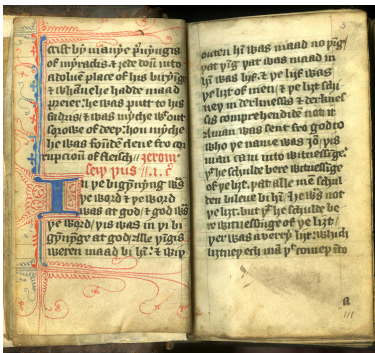 crist by manye þūyngis
of myraclis & ȝede doū into
a doluē place of his biryīge
& whāne he hadde maad
preier. he was putt to his
fadris / & was myche wᵗout
sorowe of deep. hou myche
he was foūdē clene fro cor
rupcioū of fleisch //
sey þus // .1. cᵐ
In þe bigynyng was
þe word & þe word
was at god / & god was
þe word / þis was in þe bi
gynynge at god / alle þīgis
weren maad bi hī: & wiþ
outen hī was maad no þīg /
þat þīg þat was maad in
hī was lijf. & þe lijf was
þe liȝt of men / & þe liȝt schi
neþ in derknessis & derknes
sis comprehendidē not it
A man was sent fro god to
who þe name was Jon / þis
man cam into witnessīge.
þᵗ he schulde bere witnessīge
of þe liȝt. þat alle mē schul
den bileue bi hī / he was not
þe liȝt. but þᵗ he schulde be
re witnessīge of þe liȝt /
þer was a verry liȝt: which
liȝtneþ ech mā þᵗ comeþ īto
a